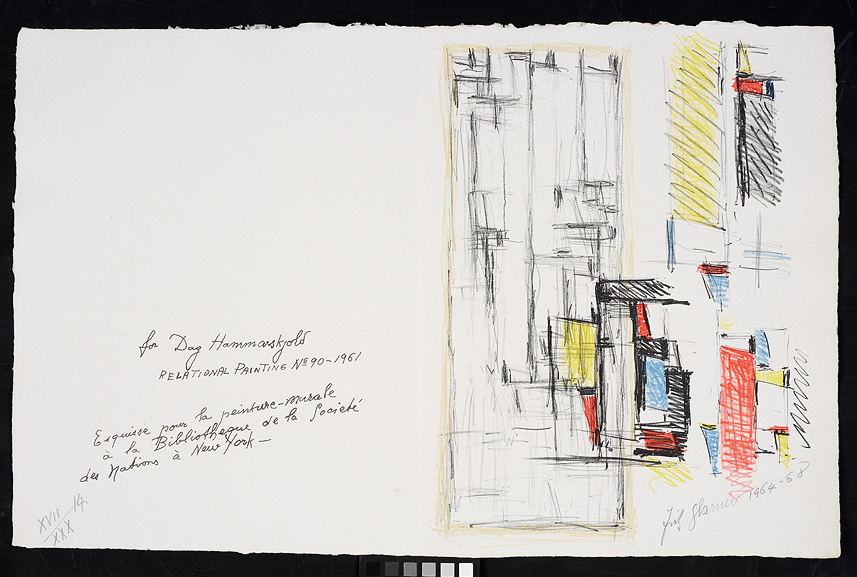 for Dag Hammarskjold
RELATIONAL PAINTING Nº 90-1961
Esquisse pour la peinture-murale
à la Bibliotheque de la Société
des Nations à New York —
XVII 14
XXX
Fritz Glarner 1964-68